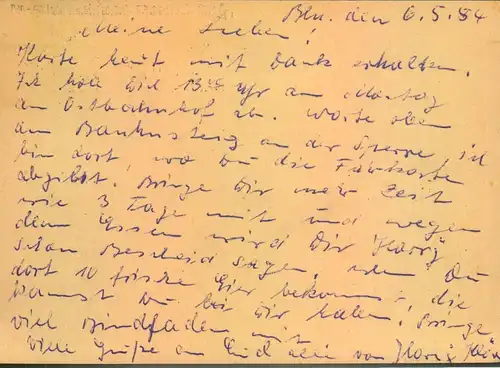 Bln. den 6.5.54
Meine Lieben!
Karte heut mit Dank erhalten.
Ich hole Dich 13 Uhr am Montag
am Ostbahnhof ab. Warte oben
am Bahnsteig an der Sperre, ich
bin dort, wo Du die Fahrkarte
abgibst. Bringe Dir mehr Zeit
wie 3 Tage mit und wegen
dem Essen wird Dir Harry
schon Bescheid sagen, wenn Du
dort 10 frische Eier bekommst, die
kannst Du bei Dir haben. Bringe
viel Bindfaden mit
Viele Grüße an Euch alle von Harry